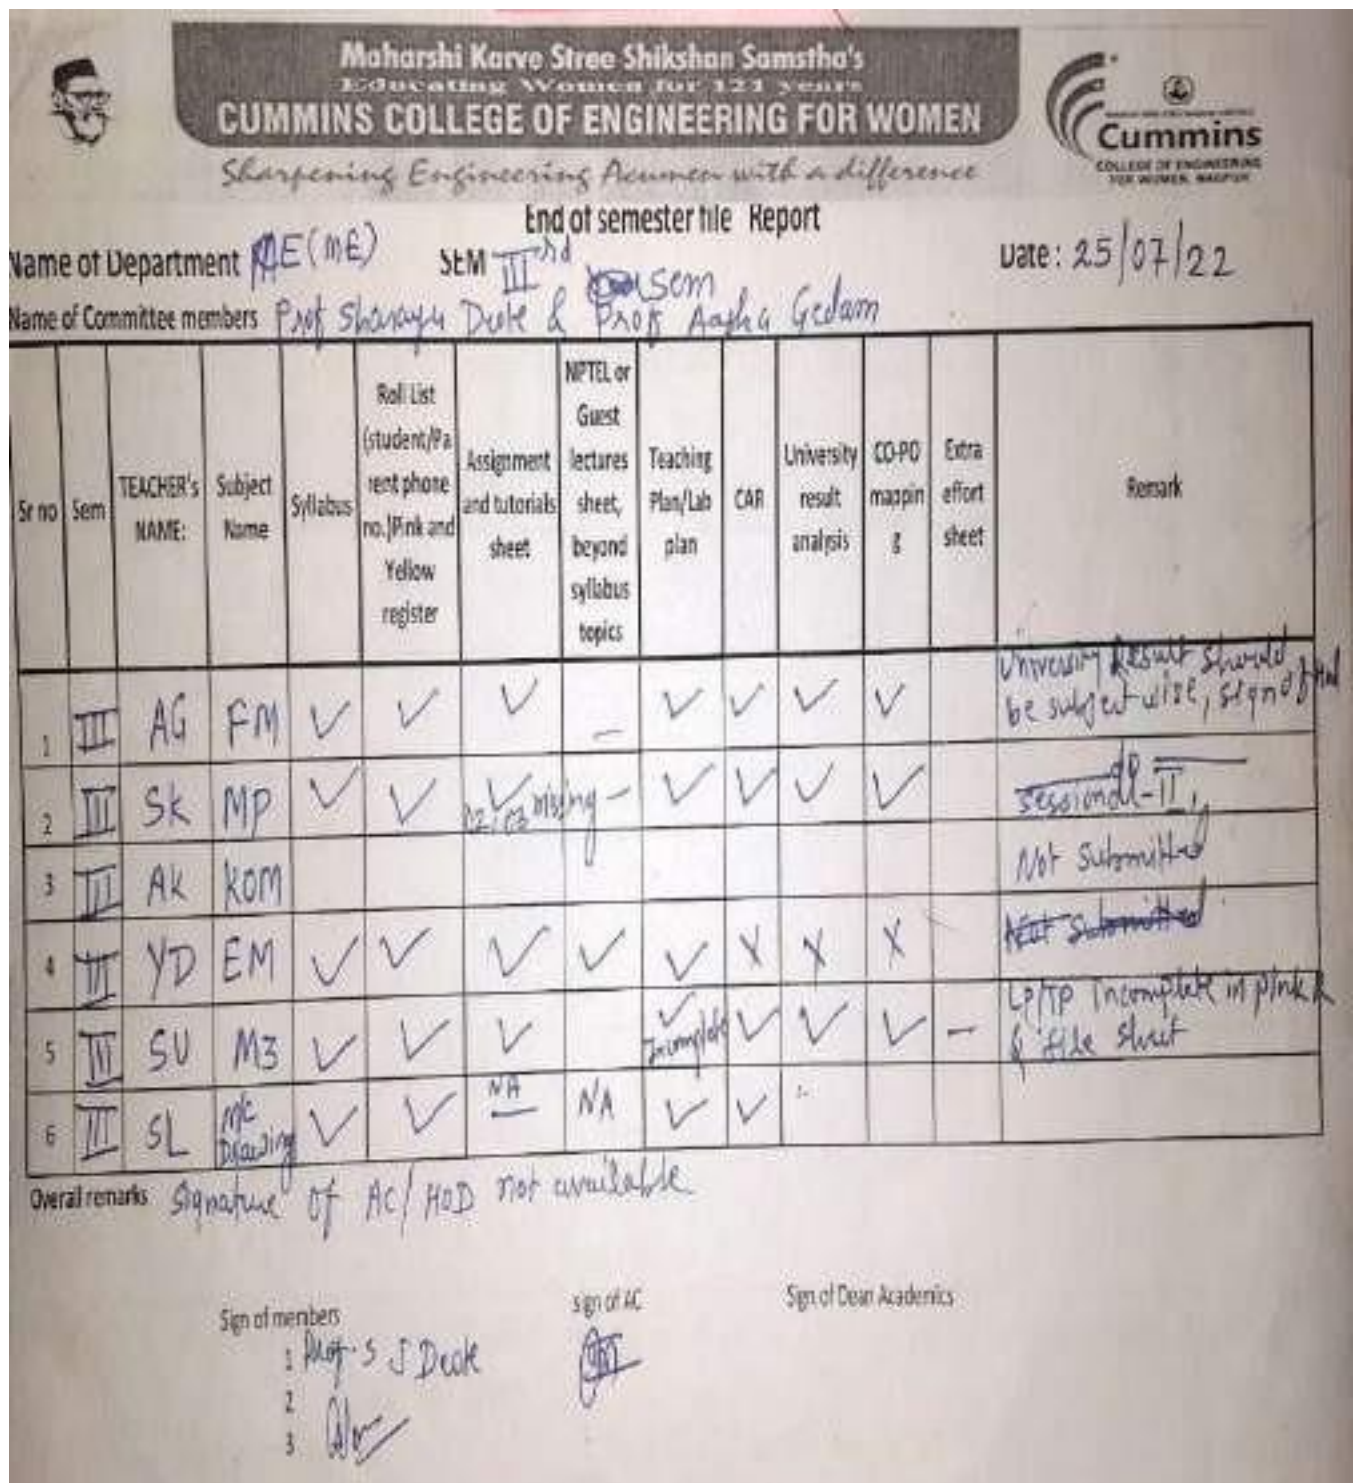 Maharshi Karve Stree Shikshan Samstha's
Educating Women for 121 years
CUMMINS COLLEGE OF ENGINEERING FOR WOMEN
Sharpening Engineering Acumen with a difference
Cummins
COLLEGE OF ENGINEERING
FOR WOMEN, NAGPUR
End of semester file Report
Name of Department ME(ME) SEM IIIrd sem Date: 25/07/22
Name of Committee members Prof Sharayu Deote & Prof Aasha Gedam
Sr no Sem TEACHER's NAME: Subject Name Syllabus Roll List (student/Parent phone no.)Pink and Yellow register Assignment and tutorials sheet NPTEL or Guest lectures sheet, beyond syllabus topics Teaching Plan/Lab plan CAR University result analysis CO-PO mapping Extra effort sheet Remark
1 III AG FM ✓ ✓ ✓ – ✓ ✓ ✓ ✓ University Result should be subject wise, sign of Hod
2 III SK MP ✓ ✓ ✓ missing – ✓ ✓ ✓ ✓ Sessional-II,
3 III AK KOM Not Submitted
4 III YD EM ✓ ✓ ✓ ✓ ✓ X X X Not Submitted
5 III SU M3 ✓ ✓ ✓ ✓ Incomplete ✓ ✓ ✓ – LP/TP Incomplete in pink & file sheet
6 III SL M/c Drawing ✓ ✓ NA NA ✓ ✓
Overall remarks Signature of AC/HOD not available
Sign of members sign of AC Sign of Dean Academics
1 Prof. S J Deote
2
3